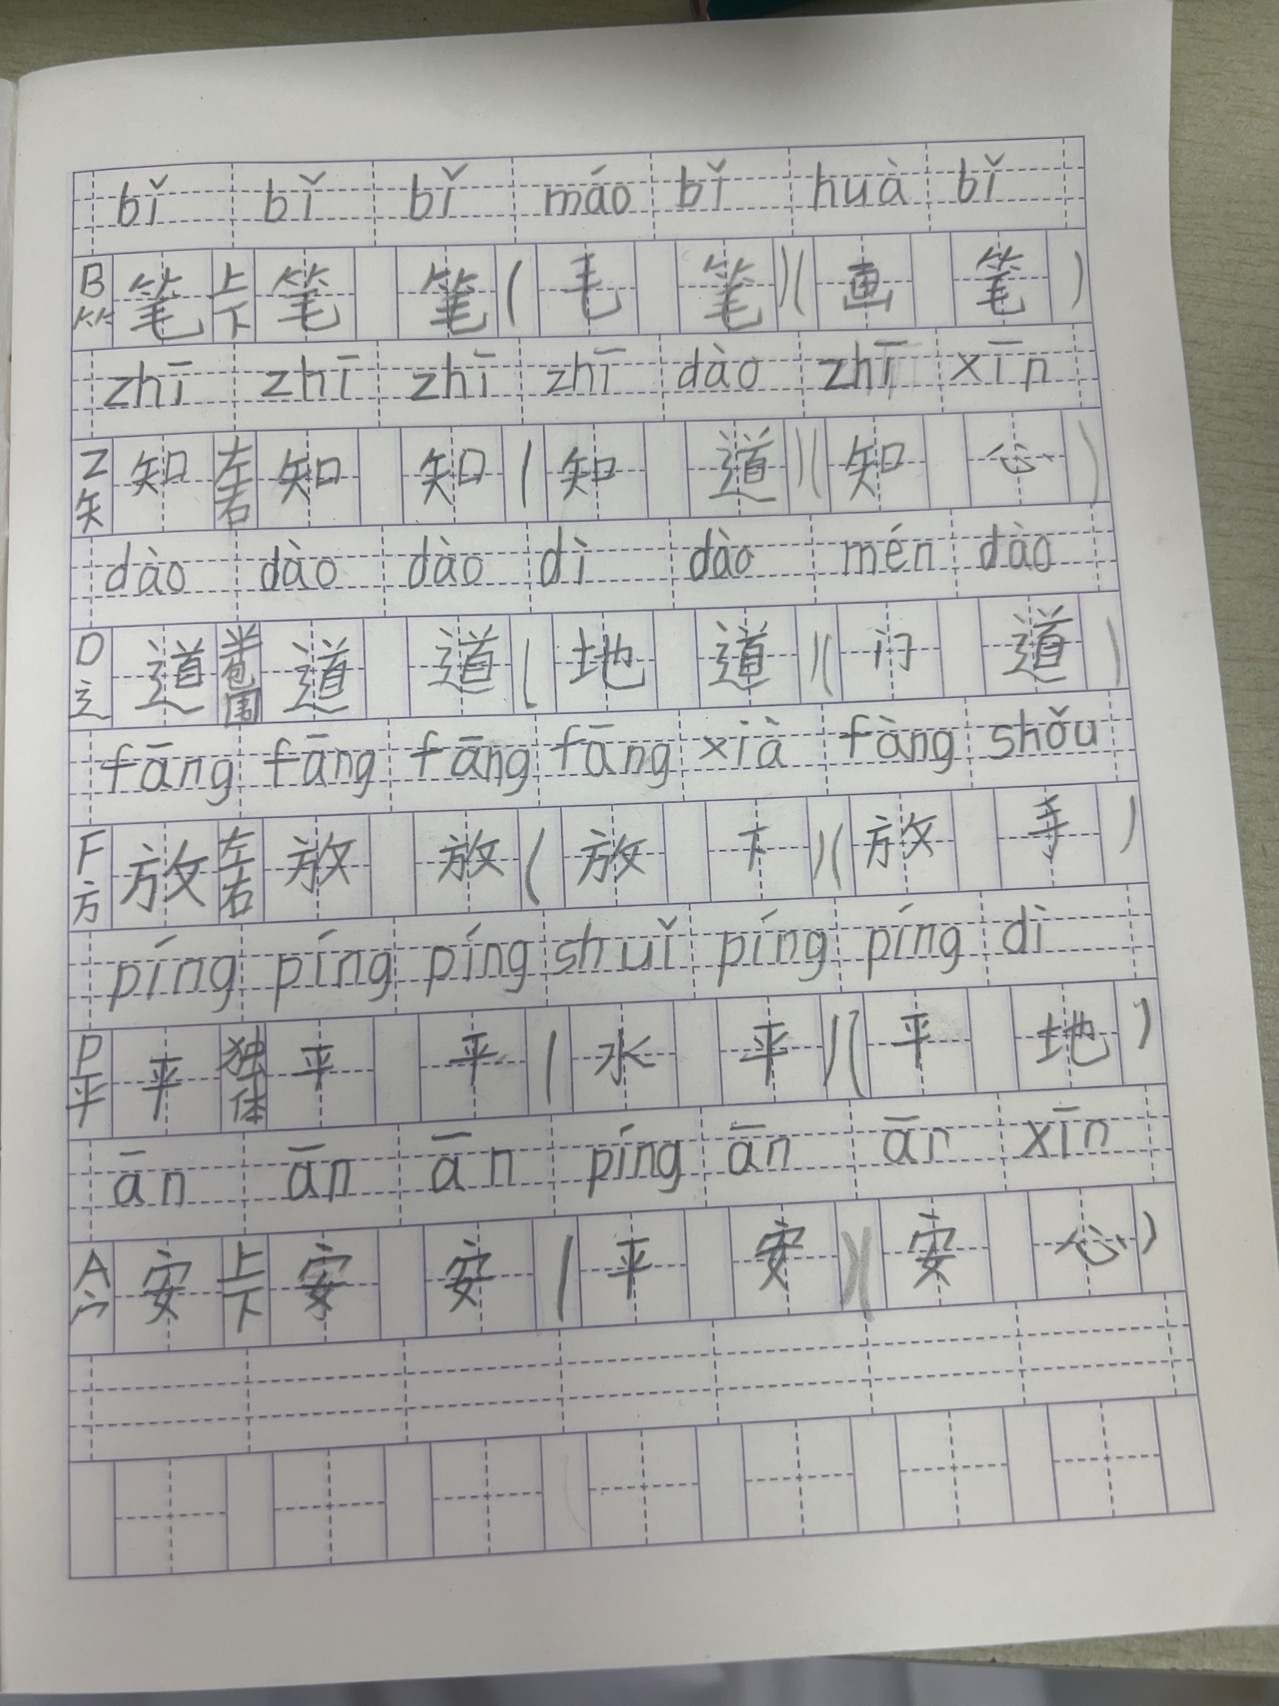 bǐ bǐ bǐ máo bǐ huà bǐ
B ⺮ 笔 上下 笔 笔 ( 毛 笔 ) ( 画 笔 )
zhī zhī zhī zhī dào zhī xīn
Z 矢 知 左右 知 知 ( 知 道 ) ( 知 心 )
dào dào dào dì dào mén dào
D 辶 道 半包围 道 道 ( 地 道 ) ( 门 道 )
fāng fāng fāng fāng xià fàng shǒu
F 方 放 左右 放 放 ( 放 下 ) ( 放 手 )
píng píng píng shuǐ píng píng dì
P 平 平 独体 平 平 ( 水 平 ) ( 平 地 )
ān ān ān píng ān ān xīn
A 宀 安 上下 安 安 ( 平 安 ) ( 安 心 )